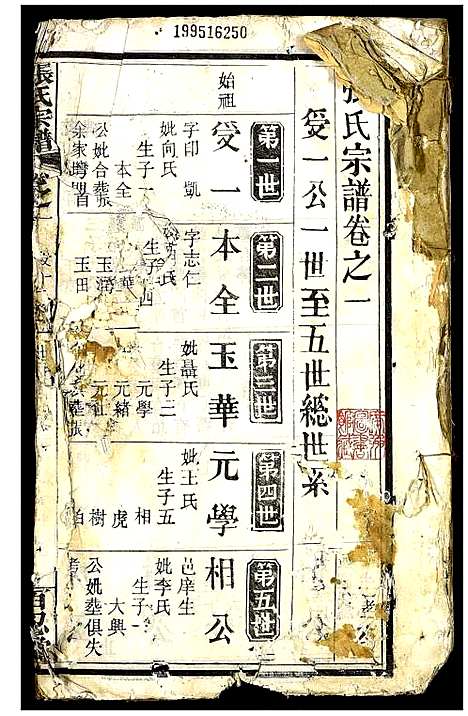 199516250
氏宗譜卷之一
受一公一世至五世總世系
始祖
第一世
受一
字印凱
妣向氏
生子一
本全
公妣合塟
第二世
本全
字志仁
氏
生子四
華
玉田
第三世
玉華
妣聶氏
生子三
元學
元緒
元
第四世
元學
妣王氏
生子五
相
虎
樹
柏
第五世
相公
邑庠生
妣李氏
生子一
大興
公妣塟俱失
考
張氏宗譜